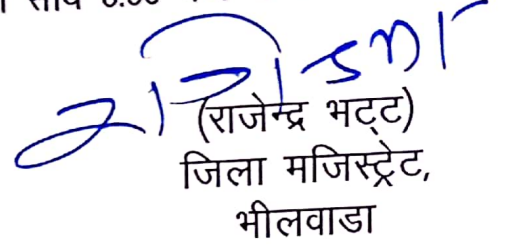 (राजेन्द्र भट्ट)
जिला मजिस्ट्रेट,
भीलवाडा